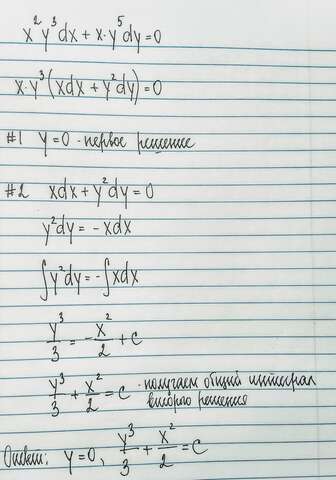 x²y³dx + x·y⁵dy = 0
x·y³(xdx + y²dy) = 0
#1 y = 0 - первое решение
#2 xdx + y²dy = 0
y²dy = - xdx
∫y²dy = -∫xdx
y³/3 = - x²/2 + C
y³/3 + x²/2 = C - получаем общий интеграл
второго решения
Ответ: y = 0, y³/3 + x²/2 = C